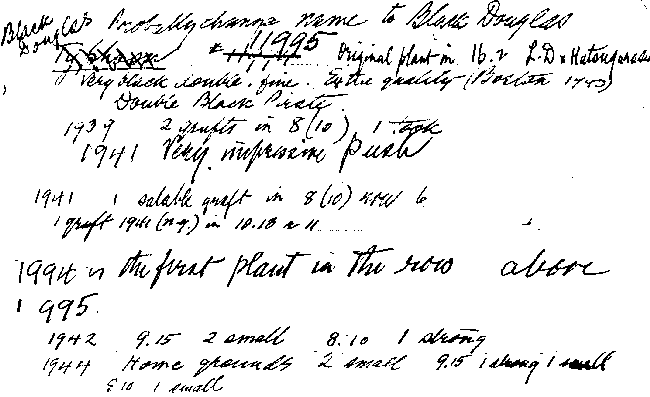 Black Douglas Probably change name to Black Douglas
* 11995 Original plant in 16.2 L.D x
Very black double. fine. Extra quality (Boston 1943)
Double Black Pirate
1939 2 grafts in 8 (10) 1 took
1941 Very impressive Push
1941 1 salable graft in 8 (10) row 6
1 graft 1941 (n.g.) in 10.10 a 11
1994 is the first plant in the row above
1995.
1942 9.15 2 small 8.10 1 strong
1944 Home grounds 2 small 9.15 1 strong 1 small
8 10 1 small